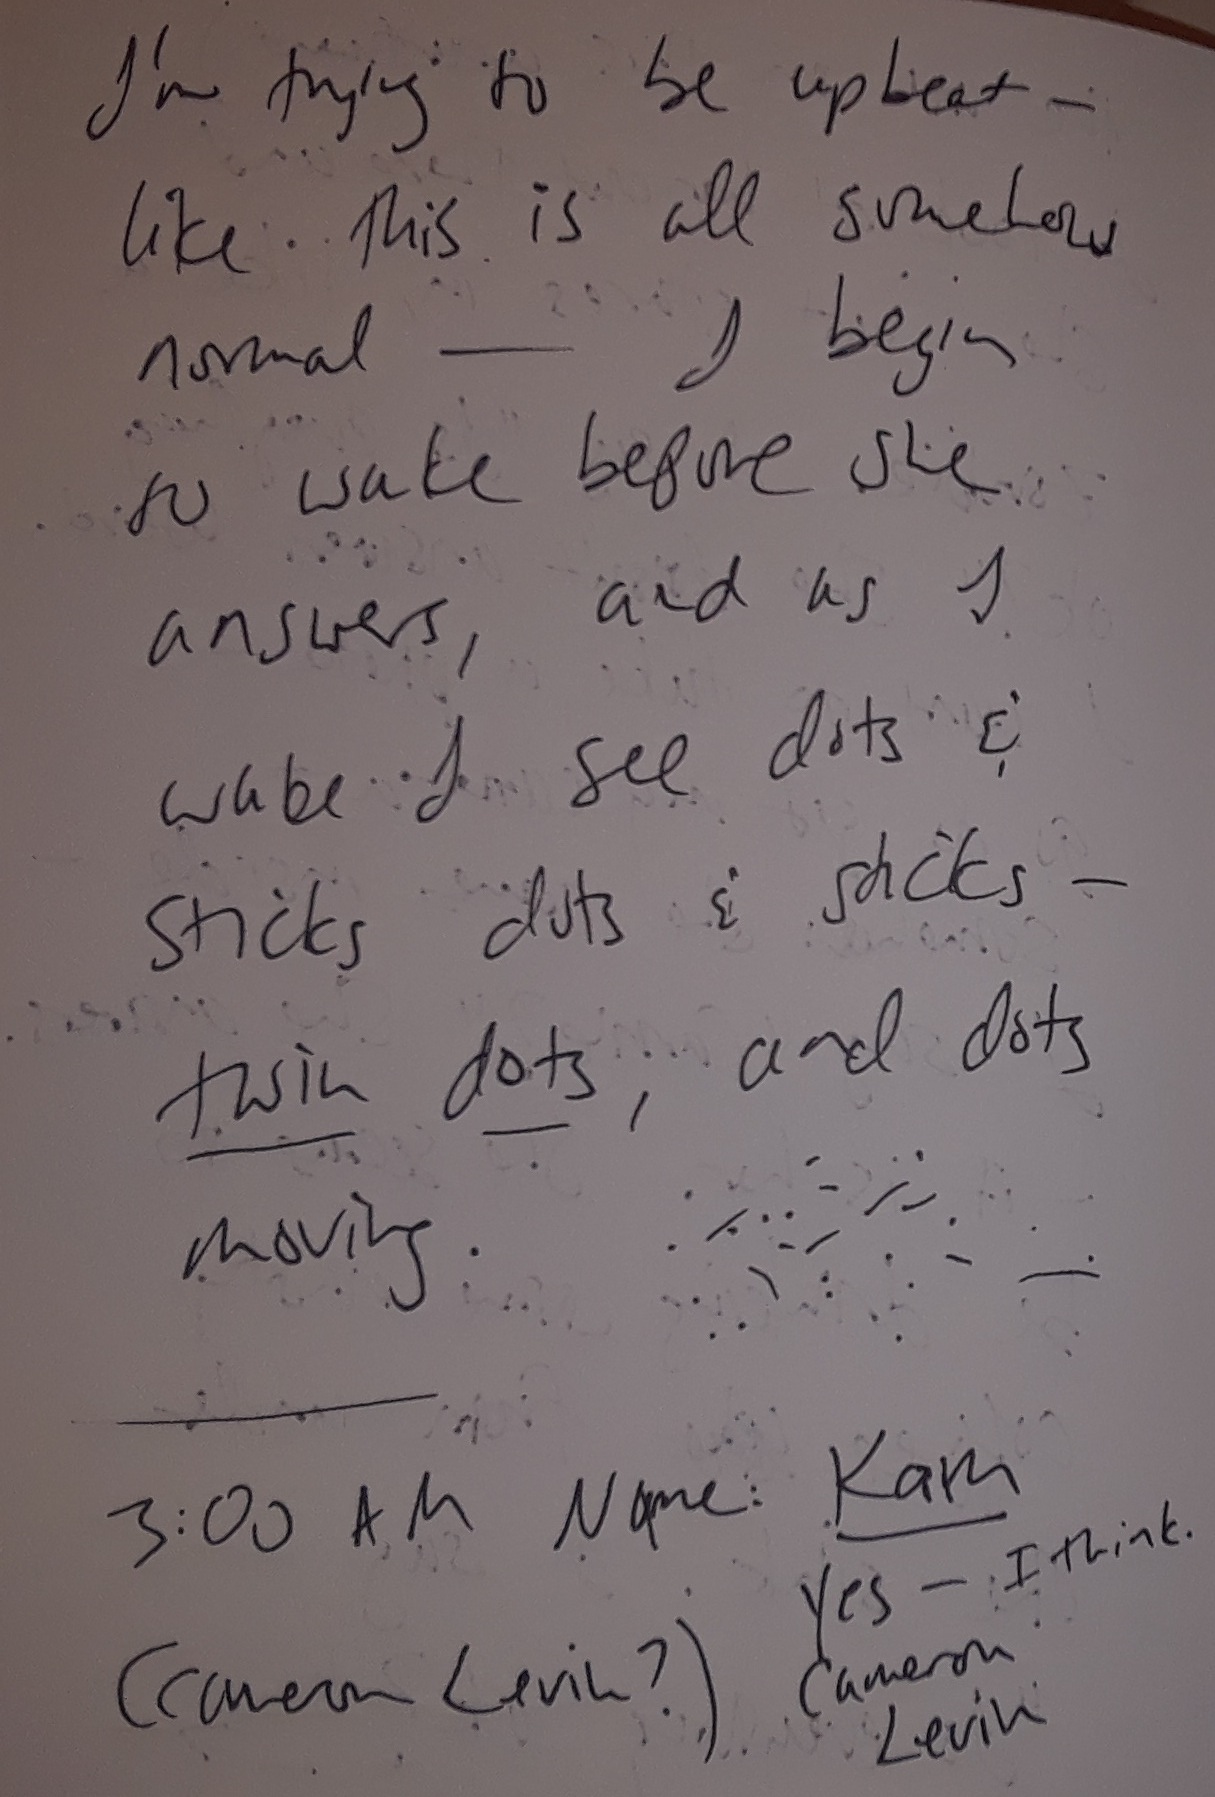 I'm trying to be upbeat –
like this is all somehow
normal — I begin
to wake before she
answers, and as I
wake I see dots &
sticks dots & sticks –
twin dots, and dots
moving.
3:00 AM Name: Kam
yes – I think.
(Cameron Levin?)
Cameron
Levin